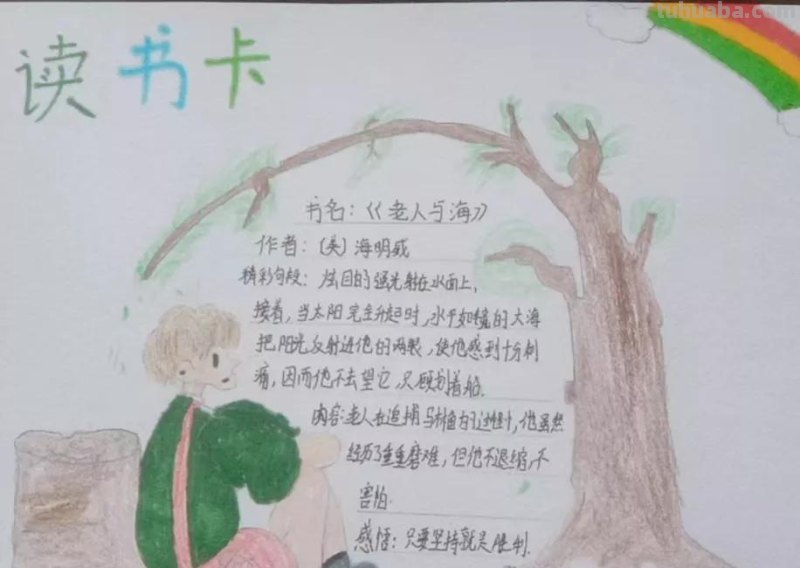 tuhuaba.com
读书卡
书名:《老人与海》
作者:(美)海明威
精彩句段:炫目的强光射在水面上,
接着,当太阳完全升起时,水平如镜的大海
把阳光反射进他的两眼,使他感到十分刺
痛,因而他不去望它,只顾划着船.
内容:老人在追捕马林鱼的过程中,他虽然
经历了重重磨难,但他不退缩,不
害怕.
感悟:只要坚持就是胜利.